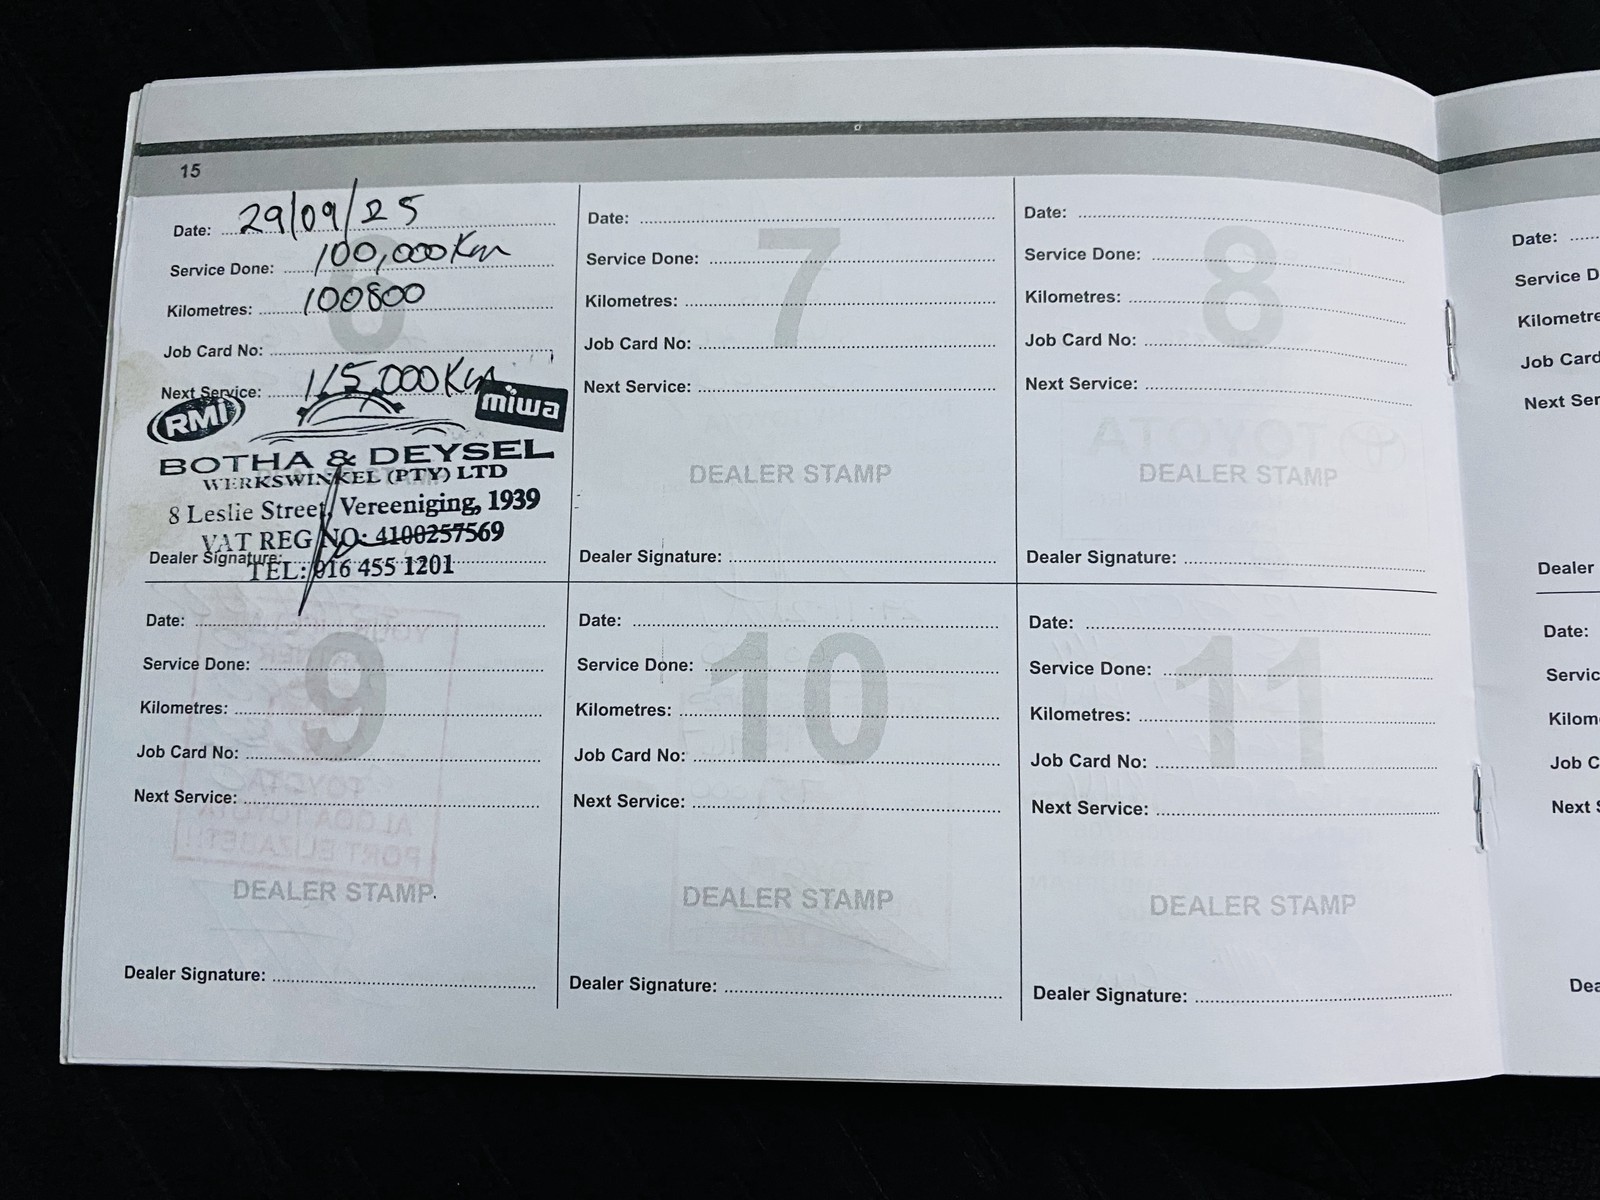 15
Date: 29/09/25
Service Done: 100,000 Km
Kilometres: 100800
Job Card No:
Next Service: 115,000 Km
6
RMI
miwa
BOTHA & DEYSEL
WERKSWINKEL (PTY) LTD
8 Leslie Street, Vereeniging, 1939
VAT REG NO: 4100257569
Dealer Signature:
TEL: 016 455 1201
Date:
Service Done:
Kilometres:
Job Card No:
Next Service:
7
DEALER STAMP
Dealer Signature:
Date:
Service Done:
Kilometres:
Job Card No:
Next Service:
8
TOYOTA
DEALER STAMP
Dealer Signature:
Date:
Service Done:
Kilometres:
Job Card No:
Next Service:
9
TOYOTA
ALGOA TOYOTA
PORT ELIZABETH
DEALER STAMP
Dealer Signature:
Date:
Service Done:
Kilometres:
Job Card No:
Next Service:
10
DEALER STAMP
Dealer Signature:
Date:
Service Done:
Kilometres:
Job Card No:
Next Service:
11
DEALER STAMP
Dealer Signature:
Date:
Service
Kilometre
Job Card
Next
Dealer
Date:
Job
Next